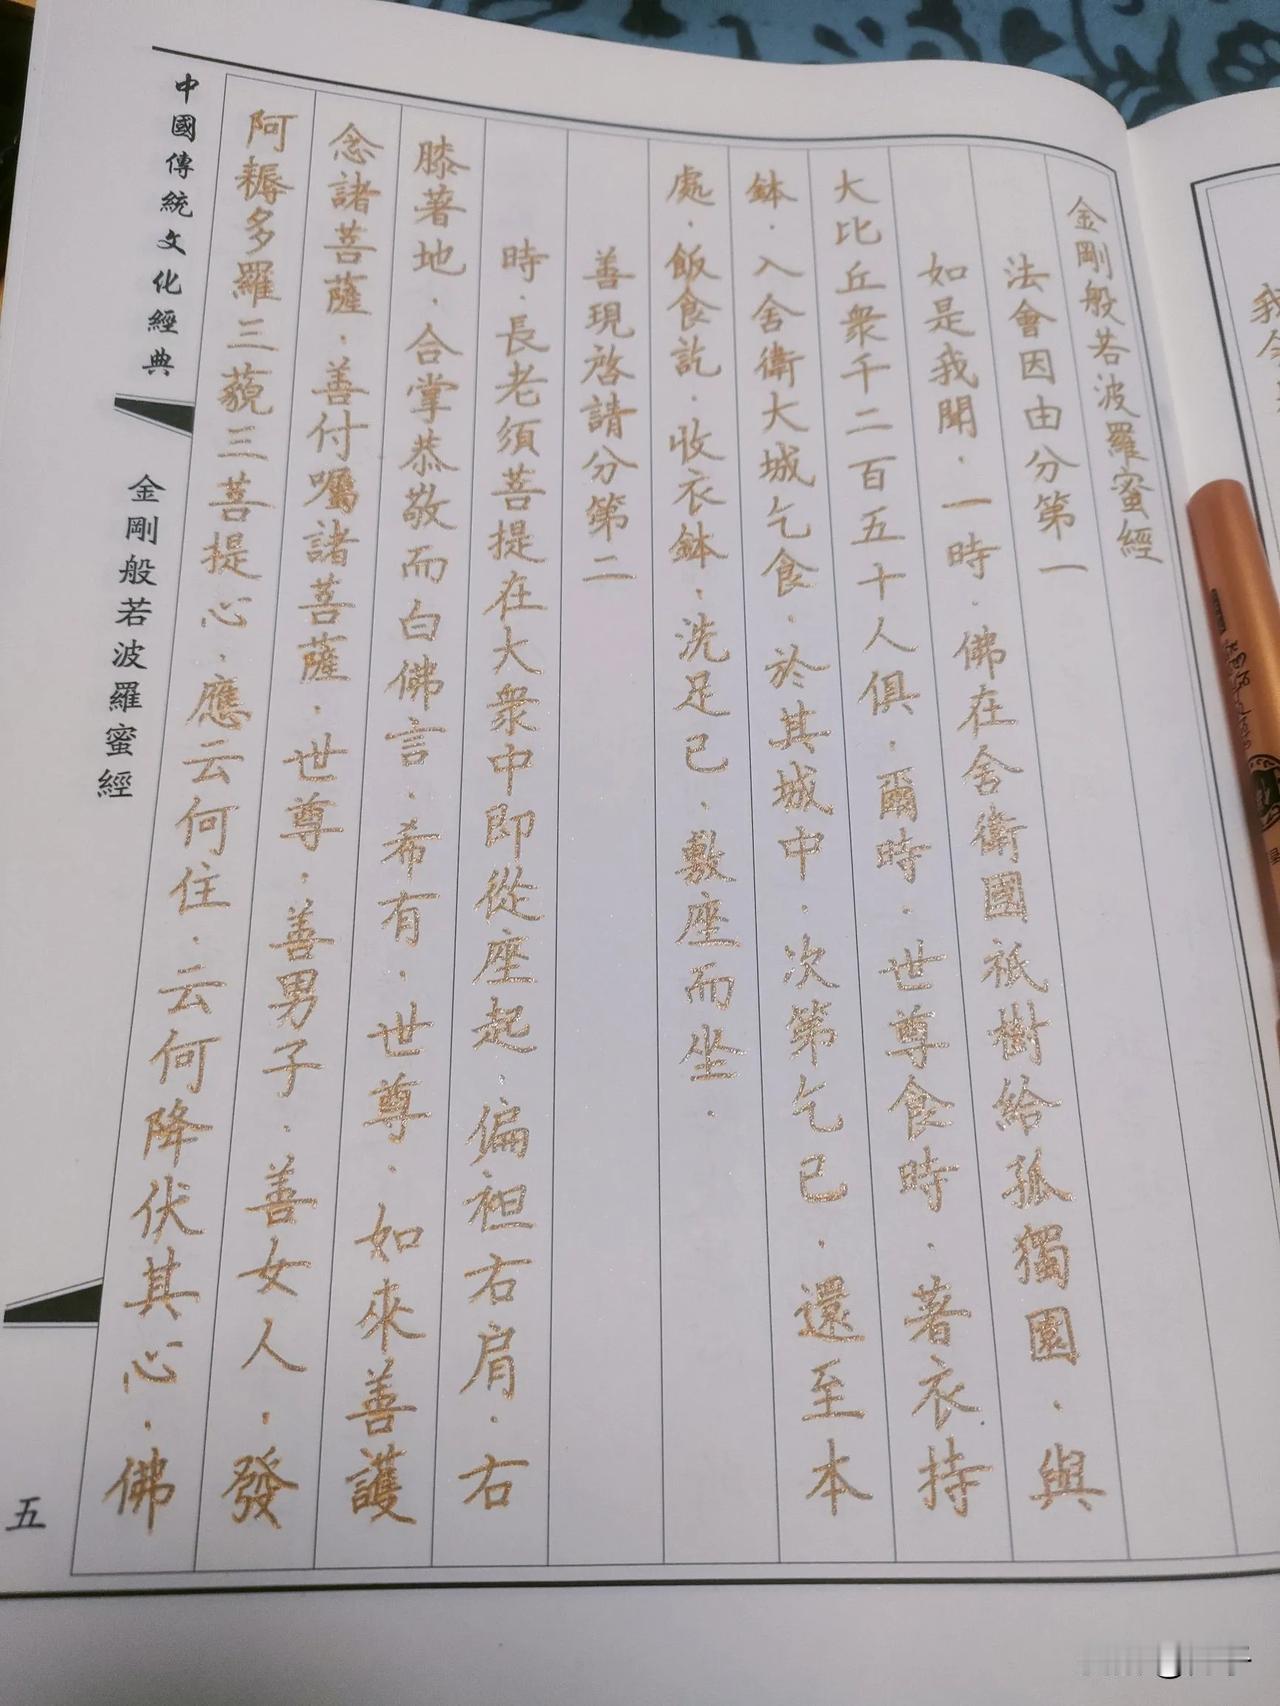 金剛般若波羅蜜經
法會因由分第一
如是我聞．一時．佛在舍衛國祇樹給孤獨園．與
大比丘眾千二百五十人俱．爾時．世尊食時．著衣持
鉢．入舍衛大城乞食．於其城中．次第乞已．還至本
處．飯食訖．收衣鉢．洗足已．敷座而坐．
善現啟請分第二
時．長老須菩提在大眾中即從座起．偏袒右肩．右
膝著地．合掌恭敬而白佛言．希有．世尊．如來善護
念諸菩薩．善付囑諸菩薩．世尊．善男子．善女人．發
阿耨多羅三藐三菩提心．應云何住．云何降伏其心．佛
中國傳統文化經典
金剛般若波羅蜜經
五